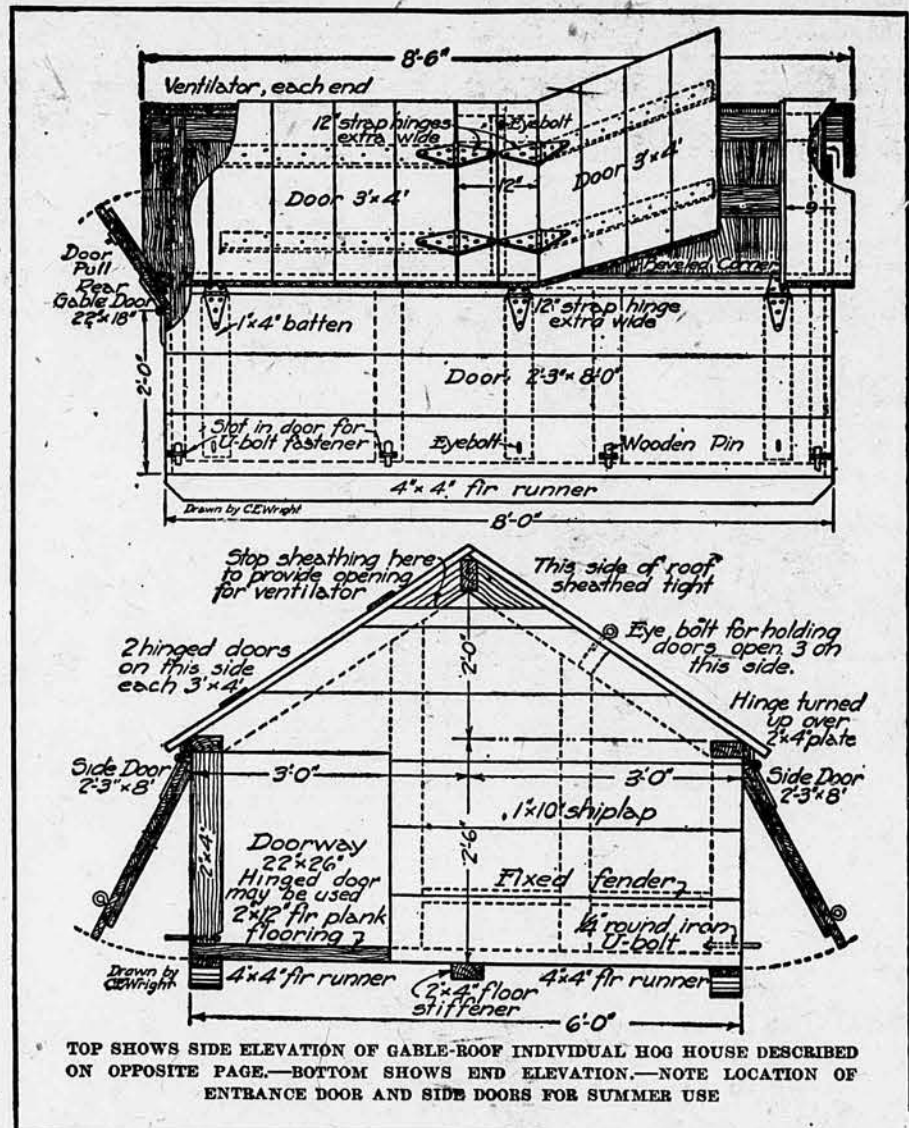 8'-6"
Ventilator, each end
12" strap hinges
extra wide
Eyebolt
Door 3'x4'
12"
Door 3'x4'
9"
Door
Pull
Rear
Gable Door
22"x18"
Beveled Corner
1"x4" batten
12" strap hinge
extra wide
2'-0"
Door 2'-3"x8'-0"
Slot in door for
U-bolt fastener
Eyebolt
Wooden Pin
4"x4" fir runner
Drawn by C.E.Wright
8'-0"
Stop sheathing here
to provide opening
for ventilator
This side of roof
sheathed tight
2 hinged doors
on this side
each 3'x4'
2'-0"
Eye bolt for holding
doors open. 3 on
this side.
Hinge turned
up over
2"x4" plate
Side Door
2'-3"x8'
3'-0"
3'-0"
Side Door
2'-3"x8'
2"x4"
1"x10" shiplap
2'-6"
Doorway
22"x26"
Hinged door
may be used
2"x12" fir plank
flooring
Fixed fender
1/4" round iron
U-bolt
Drawn by
C.E.Wright
4"x4" fir runner
2"x4" floor
stiffener
4"x4" fir runner
6'-0"
TOP SHOWS SIDE ELEVATION OF GABLE-ROOF INDIVIDUAL HOG HOUSE DESCRIBED
ON OPPOSITE PAGE.—BOTTOM SHOWS END ELEVATION.—NOTE LOCATION OF
ENTRANCE DOOR AND SIDE DOORS FOR SUMMER USE